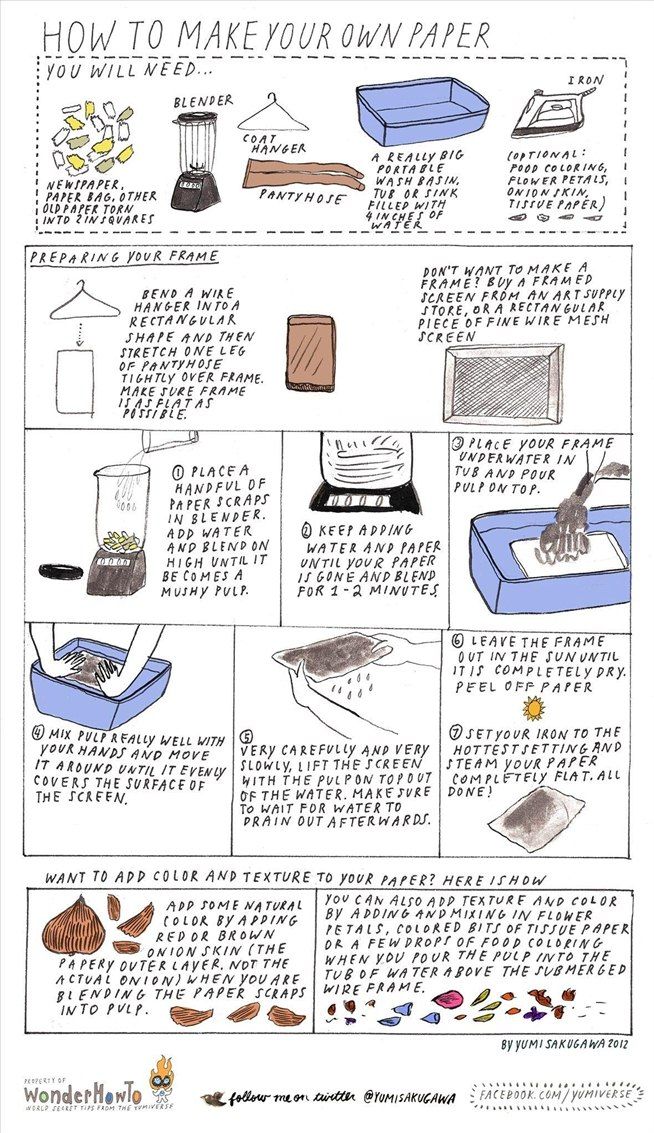 HOW TO MAKE YOUR OWN PAPER
YOU WILL NEED...
NEWSPAPER,
PAPER BAG, OTHER
OLD PAPER TORN
INTO 2 IN SQUARES
BLENDER
COAT
HANGER
PANTYHOSE
A REALLY BIG
PORTABLE
WASH BASIN,
TUB OR SINK
FILLED WITH
4 INCHES OF
WATER
IRON
(OPTIONAL:
FOOD COLORING,
FLOWER PETALS,
ONION SKIN,
TISSUE PAPER)
PREPARING YOUR FRAME
BEND A WIRE
HANGER INTO A
RECTANGULAR
SHAPE AND THEN
STRETCH ONE LEG
OF PANTYHOSE
TIGHTLY OVER FRAME.
MAKE SURE FRAME
IS AS FLAT AS
POSSIBLE.
DON'T WANT TO MAKE A
FRAME? BUY A FRAMED
SCREEN FROM AN ART SUPPLY
STORE, OR A RECTANGULAR
PIECE OF FINE WIRE MESH
SCREEN
① PLACE A
HANDFUL OF
PAPER SCRAPS
IN BLENDER.
ADD WATER
AND BLEND ON
HIGH UNTIL IT
BECOMES A
MUSHY PULP.
② KEEP ADDING
WATER AND PAPER
UNTIL YOUR PAPER
IS GONE AND BLEND
FOR 1-2 MINUTES
③ PLACE YOUR FRAME
UNDERWATER IN
TUB AND POUR
PULP ON TOP.
④ MIX PULP REALLY WELL WITH
YOUR HANDS AND MOVE
IT AROUND UNTIL IT EVENLY
COVERS THE SURFACE OF
THE SCREEN.
⑤
VERY CAREFULLY AND VERY
SLOWLY, LIFT THE SCREEN
WITH THE PULP ON TOP OUT
OF THE WATER. MAKE SURE
TO WAIT FOR WATER TO
DRAIN OUT AFTERWARDS.
⑥ LEAVE THE FRAME
OUT IN THE SUN UNTIL
IT IS COMPLETELY DRY.
PEEL OFF PAPER
⑦ SET YOUR IRON TO THE
HOTTEST SETTING AND
STEAM YOUR PAPER
COMPLETELY FLAT. ALL
DONE!
WANT TO ADD COLOR AND TEXTURE TO YOUR PAPER? HERE IS HOW
ADD SOME NATURAL
COLOR BY ADDING
RED OR BROWN
ONION SKIN (THE
PAPERY OUTER LAYER, NOT THE
ACTUAL ONION) WHEN YOU ARE
BLENDING THE PAPER SCRAPS
INTO PULP.
YOU CAN ALSO ADD TEXTURE AND COLOR
BY ADDING AND MIXING IN FLOWER
PETALS, COLORED BITS OF TISSUE PAPER
OR A FEW DROPS OF FOOD COLORING
WHEN YOU POUR THE PULP INTO THE
TUB OF WATER ABOVE THE SUBMERGED
WIRE FRAME.
BY YUMI SAKUGAWA 2012
PROPERTY OF
WonderHowTo
WORLD SECRET TIPS FROM THE YUMIVERSE
follow me on twitter @YUMISAKUGAWA
FACEBOOK.COM/YUMIVERSE